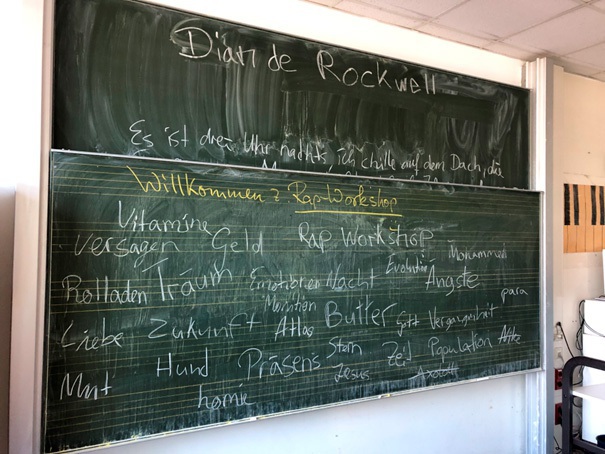 Dian de Rockwell
Es ist drei Uhr nachts, ich chille auf dem Dach, die
Willkommen z Rap-Workshop
Vitamine
versagen Geld Rap Workshop Mohammed
Rolladen Traum Emotionen Nacht Evolution Ängste para
Liebe Zukunft Atlas Butter Gott Vergangenheit
Mut Hund Präsens Stern Zeit Population Affe
homie Jesus Axolotl